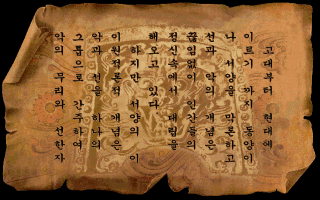 고대부터 현대에
이르기 까지 동양이
나 서양을 막론하고
선과 악의 개념은
끊임없이 인간들의
정신속에서 대립을
해오고 있다
서양의 이
개념은
악과 선을 하나의
그룹으로 간주하여
악의 무리와 선한자